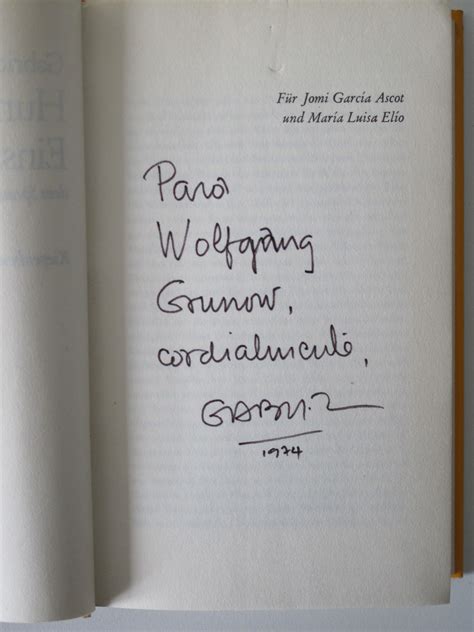 Für Jomi García Ascot
und María Luisa Elío
Para
Wolfgang
Grunow,
cordialmente,
1974